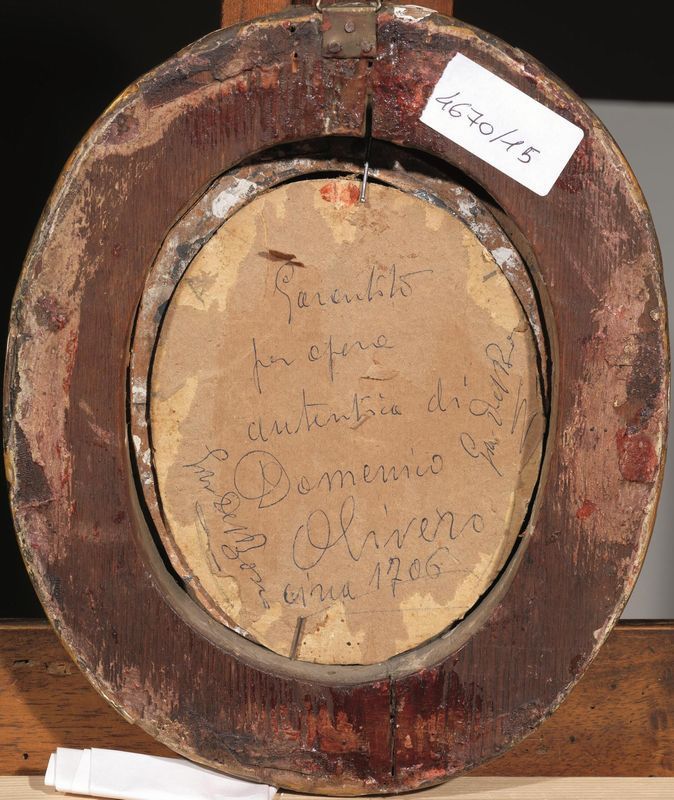 4670/15
Garantito
per opera
autentica di
Domenico
Olivero
circa 1706